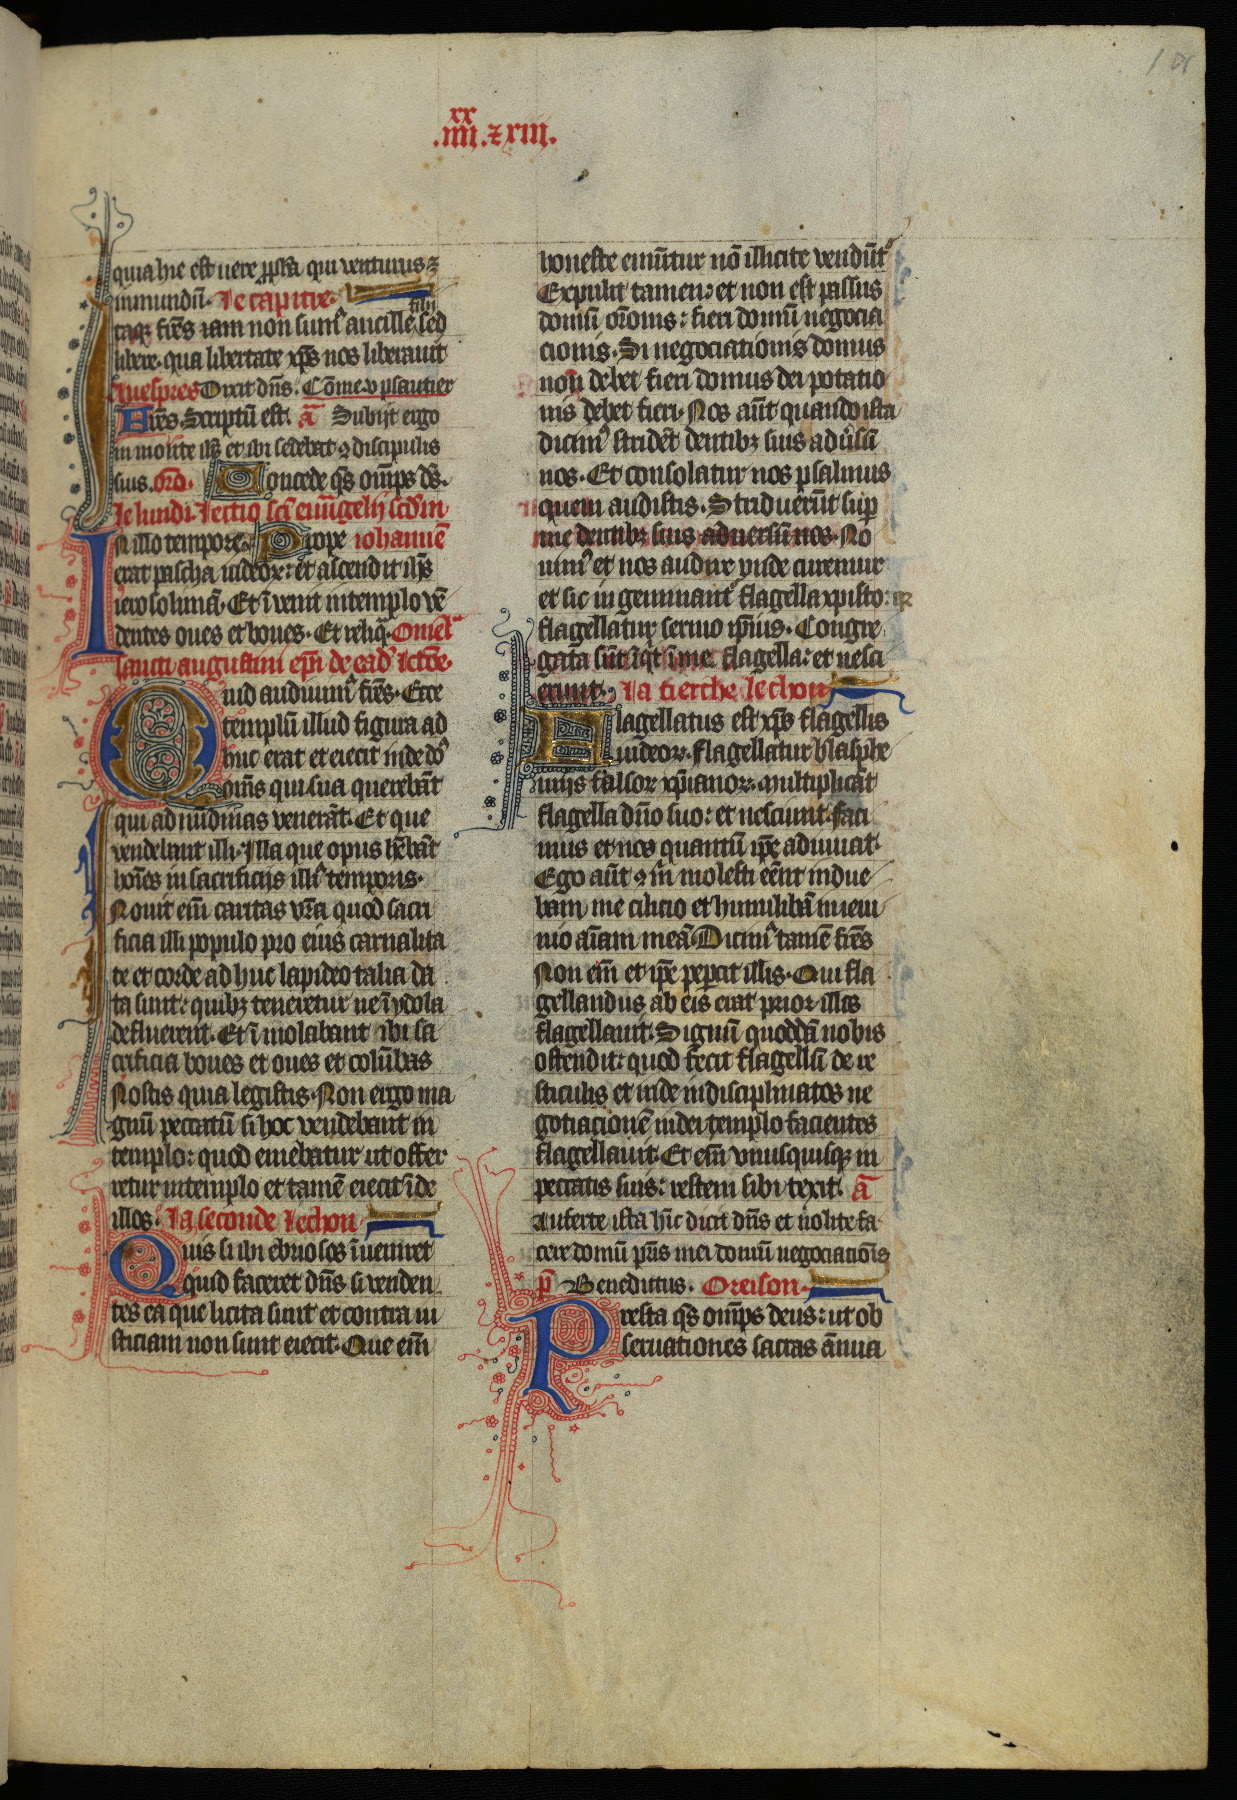 xx
.iiii. ⁊ xiii.
quia hic est uere ꝓpha qui venturus ⁊
inmundū. Le capitre.
filii
taqꝫ fr̄es iam non sum᷒ ancille sed
libere. qua libertate xp̄s nos liberauit
A uespres Dixit dn̄s. Cōme v psautier
Dir̄es. Scriptū est. ā Subijt ergo
in monte ihs̄ et ibi sedebat ꝯ discipulis
suis. ōro. Concede qs̄ om̄ps ds̄.
Le lundi. Lectio sc̄i euuāgelij scd̄m
N illo tempore. Prope iohannē
erat pascha iudeoꝝ: et ascendit ihs̄
ierosolimā. Et īvenit in templo vē
dentes oues et boues. Et reliqᷓ. Omelᷓ
sancti augustini ep̄i de ead̓ lc̄tōe.
Quid audiuim᷒ fr̄es. Ecce
templū illud figura ad
huc erat et eiecit inde do᷒
om̄s qui sua querebāt
qui ad nūdinas venerāt. Et que
vendebant illi. Illa que opus hēbāt
hoīes in sacrificijs illi᷒ temporis.
Nouit eni᷒ caritas vr̄a quod sacri
ficia illi populo pro eius carnalita
te et corde ad huc lapideo talia da
ta sunt: quibꝫ teneretur ne ī ydola
defluerent. Et īmolabant ibi sa
crificia boues et oues et colūbas
Nostis quia legistis. Non ergo ma
gnū peccatū si hoc vendebant in
templo: quod emebatur ut offer
retur in templo et tamē eiecit īde
illos. La seconde lechon
Quis si ibi ebriosos īueniret
quid faceret dn̄s si venden
tes ea que licita sunt et contra iu
sticiam non sunt eiecit. Que em̄
honeste emūtur nō illicite vendūt᷒
Expulit tamen: et non est passus
domū or̄onis: fieri domū negocia
cionis. Si negociationis domus
non debet fieri domus dei potatio
nis debet fieri. Nos aūt quando ista
dicim᷒ stridēt dentibꝫ suis aduersū
nos. Et consolatur nos psalmus
quem audistis. Striduerūt sup
me dentibꝫ suis aduersū nos. No
uim᷒ et nos audire vnde curemur
et sic ingeminant᷒ flagella xpisto: qꝫ
flagellatur sermo ip̄ius. Congre
gata sūt īqt ī me flagella: et nesci
erunt. La tierche lechon
Flagellatus est xp̄s flagellis
iudeoꝝ. flagellatur blasphe
mijs falsoꝝ xp̄ianoꝝ. multiplicāt
flagella dn̄o suo: et nesciunt. faci
mus et nos quantū ip̄e adiuuat.
Ego aūt ꝯ m̄ molesti eēnt indue
bam me cilicio et humiliabā in ieiu
nio aīam meā. Dicim᷒ tamē fr̄es
Non em̄ et ip̄e pepcit illis. Qui fla
gellandus ab eis erat prior illos
flagellauit. Signū quoddā nobis
ostendit: quod fecit flagellū de re
sticulis et inde indisciplinatos ne
gotiacionē in dei templo facientes
flagellauit. Et em̄ vnusquisqꝫ in
peccatis suis: restem sibi texit. ā
Auferte ista hic̄ dicit dn̄s et nolite fa
cere domū pr̄is mei domū negociaciōis
p̄ Benedictus. Oreison
Presta qs̄ om̄ps deus: ut ob
seruationes sacras ānua